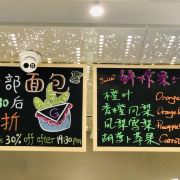 部面包
30后
折
30% off after 19:30 pm
Juice
鲜榨果汁
橙汁
香橙凤梨
凤梨雪梨
胡萝卜苹果
Orange
Orange
Pineapple
Carrot